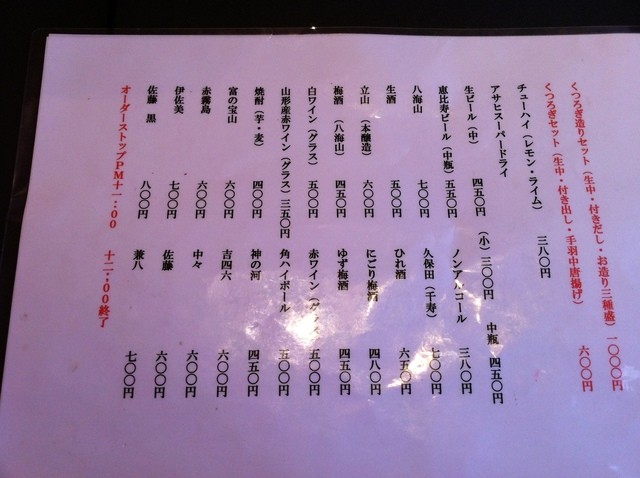 くつろぎ造りセット（生中・付きだし・お造り三種盛）一〇〇〇円
くつろぎセット（生中・付き出し・手羽中唐揚げ）六〇〇円
チューハイ（レモン・ライム） 三八〇円
アサヒスーパードライ
生ビール（中） 四五〇円 （小）三〇〇円 中瓶 四五〇円
恵比寿ビール（中瓶）五五〇円 ノンアルコール 三八〇円
八海山 七〇〇円 久保田（千寿） 七〇〇円
生酒 五〇〇円 ひれ酒 六五〇円
立山（本醸造） 六〇〇円 にごり梅酒 四八〇円
梅酒（八海山） 四五〇円 ゆず梅酒 四五〇円
白ワイン（グラス） 五〇〇円 赤ワイン（グラス） 五〇〇円
山形産赤ワイン（グラス）三五〇円 角ハイボール 五〇〇円
焼酎（芋・麦） 四〇〇円 神の河 四五〇円
富の宝山 六〇〇円 吉四六 六〇〇円
赤霧島 六〇〇円 中々 六〇〇円
伊佐美 七〇〇円 佐藤 六〇〇円
佐藤 黒 八〇〇円 兼八 七〇〇円
オーダーストップＰＭ十一：００ 十二：００終了